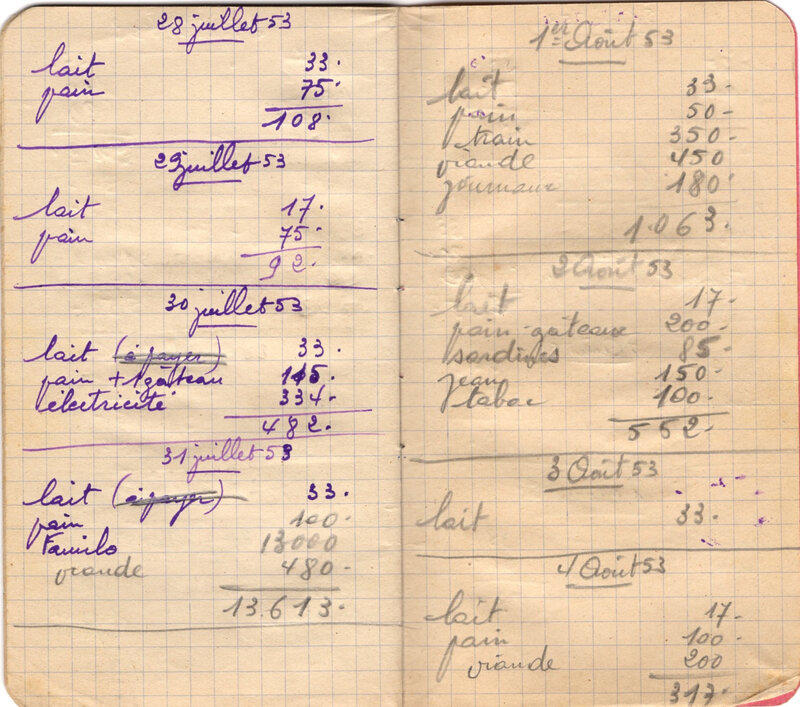 28 juillet 53
lait 33.
pain 75.
108.
29 juillet 53
lait 17.
pain 75.
92.
30 juillet 53
lait (à payer) 33.
pain + 1 gâteau 115.
électricité 334.
482.
31 juillet 53
lait (à payer) 33.
pain 100.
Familo 13000
viande 480.
13.613.
1er Août 53
lait 33.
pain 50.
train 350.
viande 450
journaux 180.
1.063.
2 Août 53
lait 17.
pain-gâteaux 200.
sardines 85.
jean 150.
tabac 100.
552.
3 Août 53
lait 33.
4 Août 53
lait 17.
pain 100.
viande 200
317.